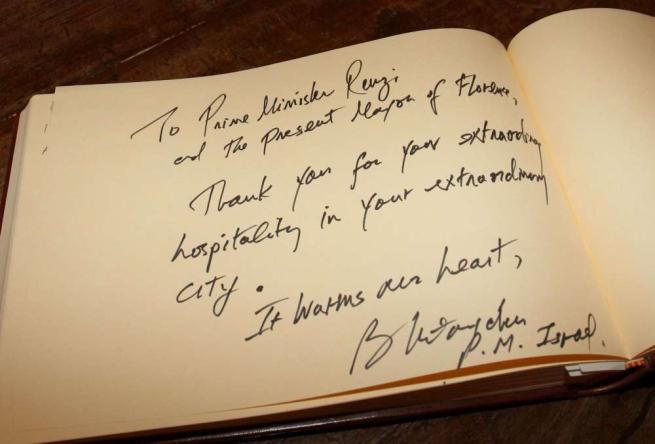 To Prime Minister Renzi
and the Present Mayor of Florence,
Thank you for your extraordinary
hospitality in your extraordinary
city.
It warms our heart,
B Netanyahu
P.M. Israel.